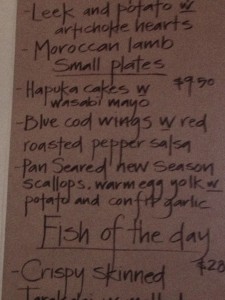 -Leek and potato w
artichoke hearts
- Moroccan lamb
Small plates
-Hapuka cakes w $9.50
wasabi mayo
-Blue cod wings w red
roasted pepper salsa
-Pan Seared new season
scallops, warm egg yolk w
potato and confit garlic
Fish of the day
-Crispy skinned $28